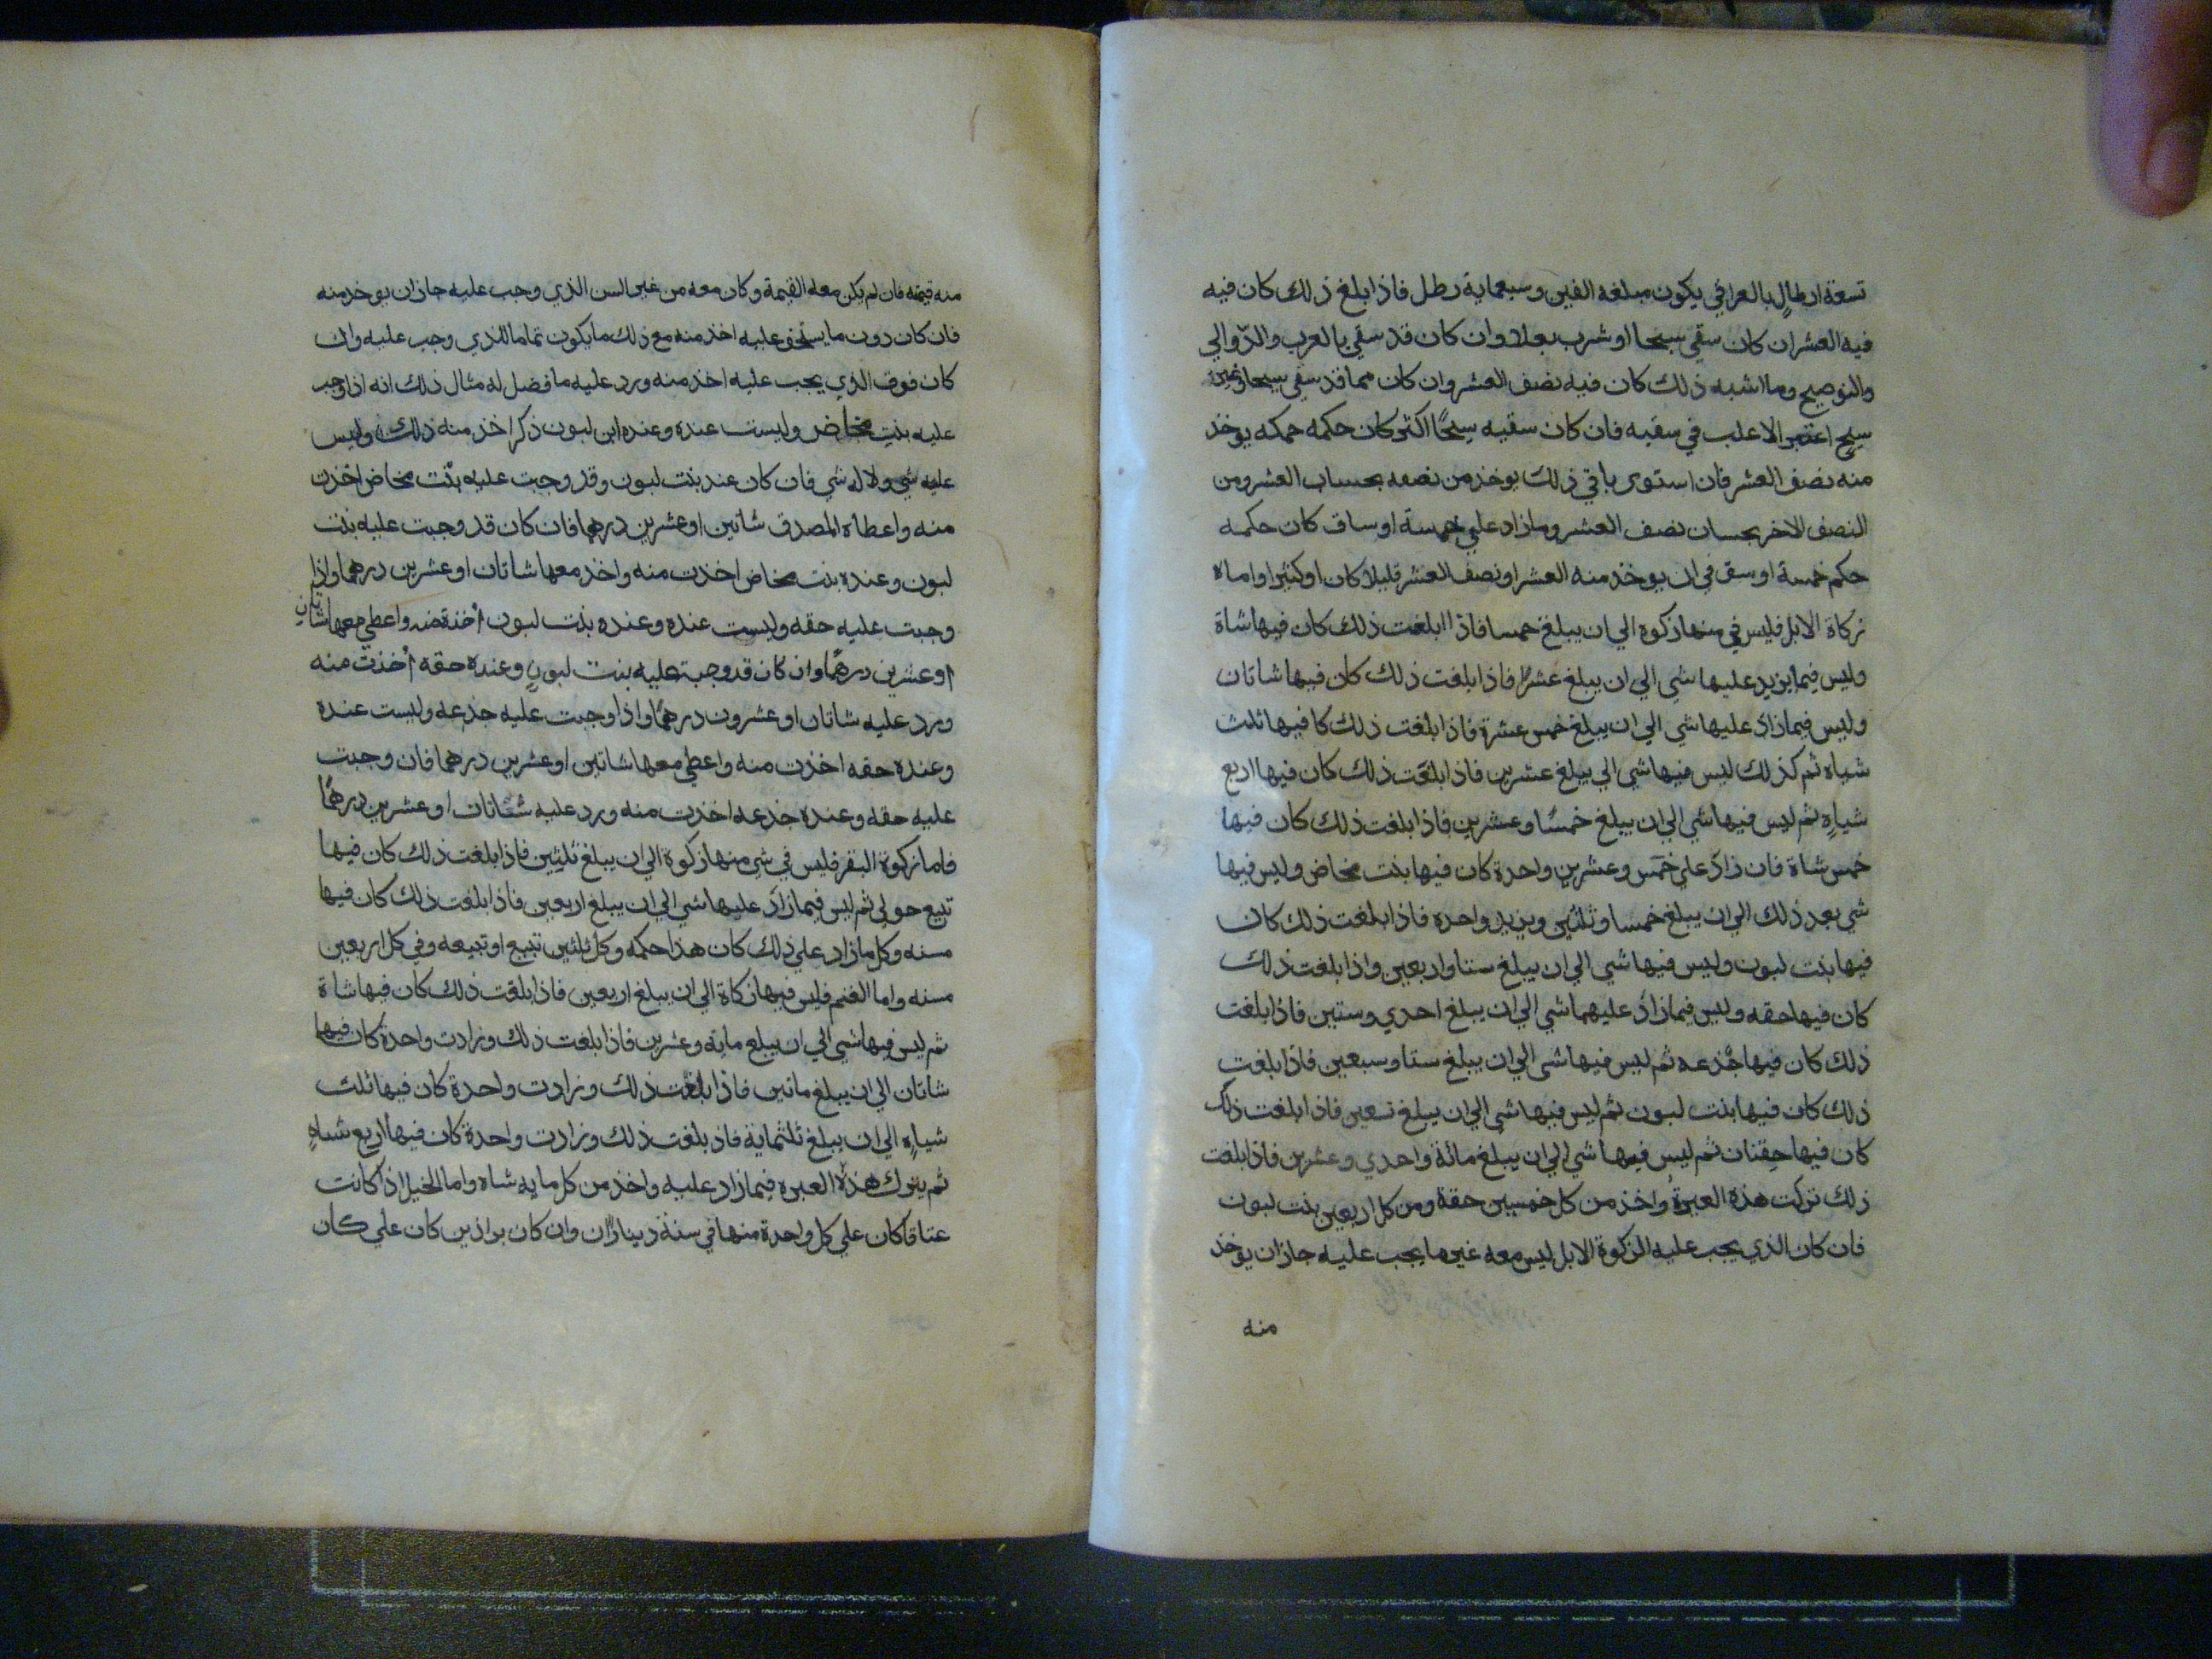 تسعة ارطالٍ بالعراقي يكون مبلغه الفين وسبعماية رطل فاذا بلغ ذلك كان فيه
فيه العشر ان كان سقي سيحا او شرب بعلا وان كان قد سقي بالعرب والدّوالي
والنوصيح وما اشبه ذلك كان فيه نصف العشر وان كان مما قد سقي سيحا وغير
سيح اعتبر الاغلب في سقيه فان كان سقيه سيحًا اكثر كان حكمه حمكه يوخذ
منه نصف العشر فان استوى باقي ذلك يوخذ من نصفه بحساب العشر ومن
النصف الاخر بحسان نصف العشر وما زاد علي خمسة اوساق كان حكمه
حكم خمسة اوسق في ان يوخذ منه العشر او نصف العشر قليلا كان او كثيرا واماه
زكاة الابل فليس في منها زكوة الي ان يبلغ خمسا فاذا ابلغت ذلك كان فيها شاة
وليس فيما يزيد عليها شي الي ان يبلغ عشرًا فاذا بلغت ذلك كان فيها شاتان
وليس فيما زاد عليها شي الي ان يبلغ خمس عشرة فاذا بلغت ذلك كا فيها ثلث
شياه ثم كذلك ليس فيها شي الي يبلغ عشرين فاذا بلغت ذلك كان فيها اربع
شياهٍ ثم ليس فيها شي الي ان يبلغ خمسًا وعشرين فاذا بلغت ذلك كان فيها
خمس شاة فان زاد علي خمس وعشرين واحدة كان فيها بنت مخاض وليس فيها
شي بعد ذلك الي ان يبلغ خمسا وثلثين ويزيد واحده فاذا بلغت ذلك كان
فيها بنت لبون وليس فيها شي الي ان يبلغ ستا واربعين واذا بلغت ذلك
كان فيها حقه وليس فيما زاد عليهما شي الي ان يبلغ احدي وستين فاذا بلغت
ذلك كان فيها جذعه ثم ليس فيها شى الي ان يبلغ ستا وسبعين فاذا بلغت
ذلك كان فيها بنت لبون ثم ليس فيها شي الي ان يبلغ تسعين فاذا بلغت ذلك
كان فيها حقتان ثم ليس فيها شي الي ان يبلغ مائة واحدي وعشرين فاذا بلغت
ذلك تركت هذه العبرة واخذ من كل خمسين حقة ومن كل اربعين بنت لبون
فان كان الذي يجب عليه الزكوة الابل ليس معه غير ما يجب عليه جاز ان يوخذ
منه
منه قيمته فان لم يكن معه القيمة وكان معه من غير السن الذي وجب عليه جاز ان يوخذ منه
فان كان دون ما يستحق عليه اخذ منه مع ذلك ما يكون تماما للذي وجب عليه وان
كان فوق الذي يجب عليه اخذ منه ورد عليه ما فضل له مثال ذلك انه اذا وجب
عليه بنت مخاض وليست عنده وعنده ابن لبون ذكر اخذ منه ذلك وليس
عليه شي ولا له شي فان كان عند بنت لبون وقد وجبت عليه بنّت مخاض اخذت
منه واعطاه المصدق شاتين او عشرين درهما فان كان قد وجبت عليه بنت
لبون وعنده بنت مخاض اخذت منه واخذ معها شاتان او عشرين درهما واذا
وجبت عليه حقه وليست عنده وعنده بنت لبون أخذة واعطي معها شاتان
او عشرين درهمًا وان كان قد وجبت عليه بنت لبونٍ وعنده حقه أخذت منه
ورد عليه شاتان او عشرون درهمًا واذا وجبت عليه جذعه وليست عنده
وعنده حقه اخذت منه واعطي معها شاتين او عشرين درهما فان وجبت
عليه حقه وعنده جذعه اخذت منه ورد عليه شاتان او عشرين درهمًا
فاما زكوة البقر فليس في شي منها زكوة الي ان يبلغ ثلثين فاذا بلغت ذلك كان فيها
تبيع حولي ثم ليس فيما زاد عليها شي الي ان يبلغ اربعين فاذا بلغت ذلك كان فيها
مسنه وكل ما زاد علي ذلك كان هذا حكمه وكل ثلثين تبيع او تبيعه وفي كل اربعين
مسنه واما الغنم فليس فيها زكاة الي ان يبلغ اربعين فاذا بلغت ذلك كان فيها شاة
ثم ليس فيها شي الي ان يبلغ ماية وعشرين فاذا بلغت ذلك وزادت واحدة كان فيها
شاتان الي ان يبلغ ماتين فاذا بلغت ذلك وزادت واحدة كان فيها ثلث
شياهٍ الي ان يبلغ ثلثماية فاذ بلغت ذلك وزادت واحدة كان فيها أربع شياهٍ
ثم يترك هذه العبره فيما زاد عليه واخذ من كل مايه شاه واما الخيل اذا كانت
عتاقا كان علي كل واحدة منها في سنة ديناران وان كان براذين كان علي كان